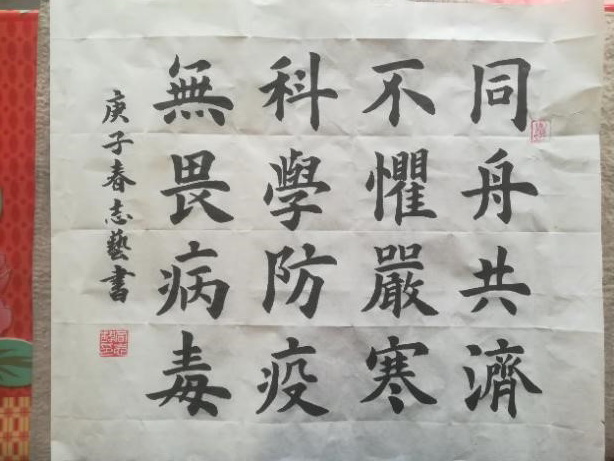 同舟共濟
不懼嚴寒
科學防疫
無畏病毒
庚子春志藝書